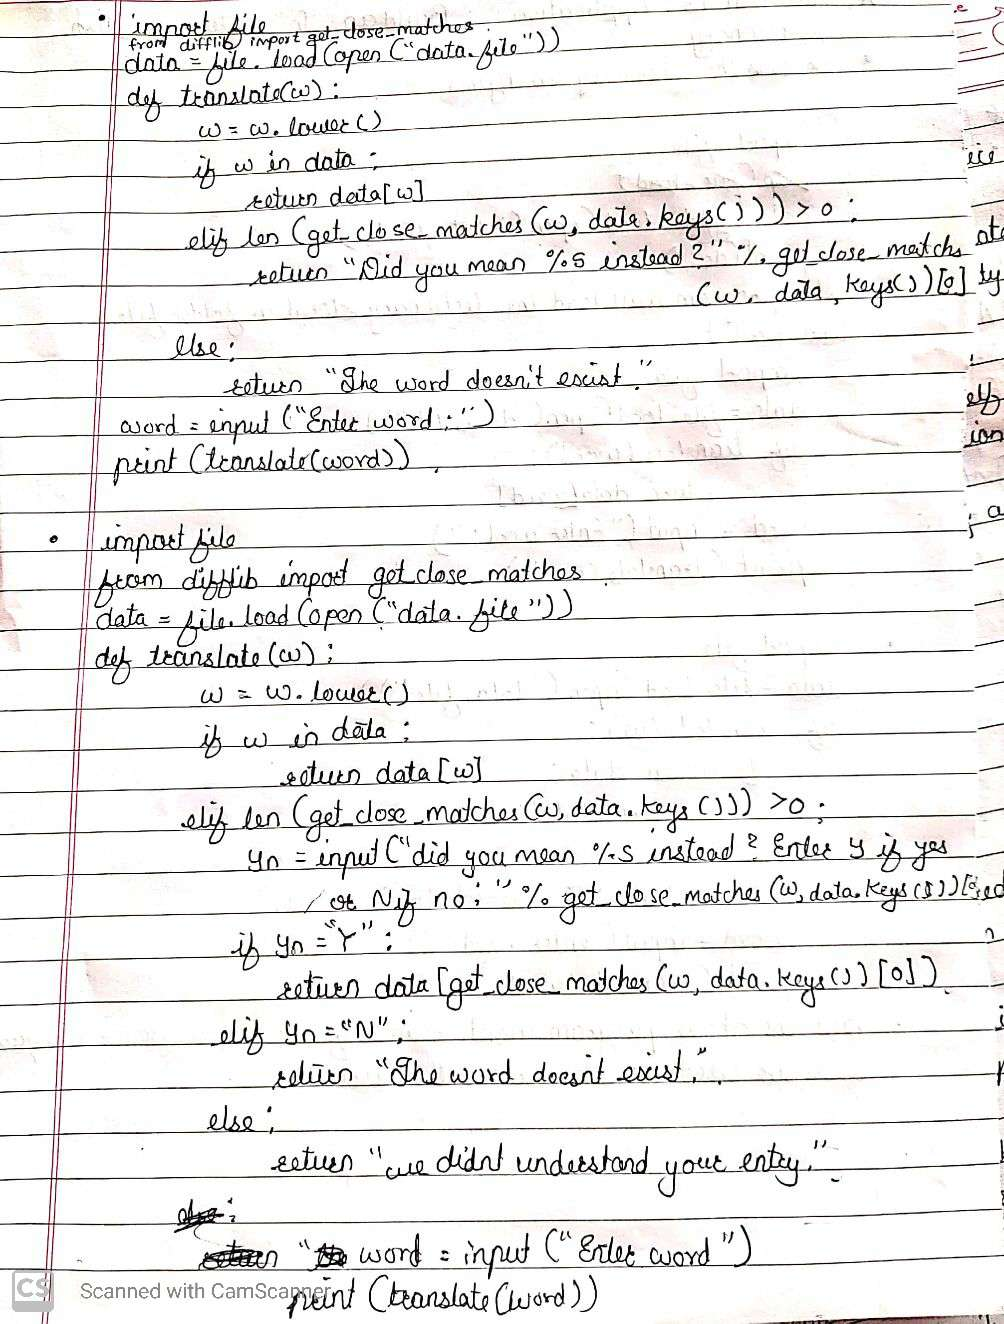 • import file
from difflib import get_close_matches
data = file.load(open("data.file"))
def translate(w):
w = w.lower()
if w in data:
return data[w]
elif len (get_close_matches (w, data.keys())) > 0:
return "Did you mean %s instead?" % get_close_matchs
(w, data, keys())[0]
else:
return "The word doesn't exist."
word = input ("Enter word:")
print (translate(word)).
• import file
from difflib import get_close_matches
data = file.load(open("data.file"))
def translate (w):
w = w.lower()
if w in data:
return data [w]
elif len (get_close_matches (w, data.keys ())) >0:
yn = input ("did you mean %s instead? Enter Y if yes
or N if no:" % get_close_matches (w, data.keys ())[0]
if yn = "Y":
return data [get_close_matches (w, data.keys()) [0])
elif yn = "N":
return "The word doesnt exist."
else:
return "we didnt understand your entry."
word = input ("Enter word")
print (translate (word))
CS Scanned with CamScanner